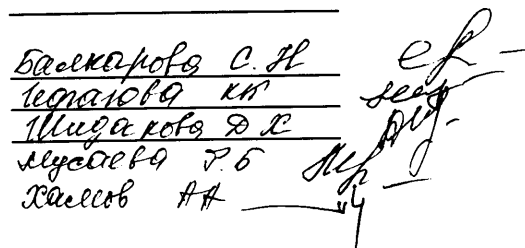 Балкарова С. Н
КП
Шидакова Д Х
Мусаева Р. Б
Хамов АА